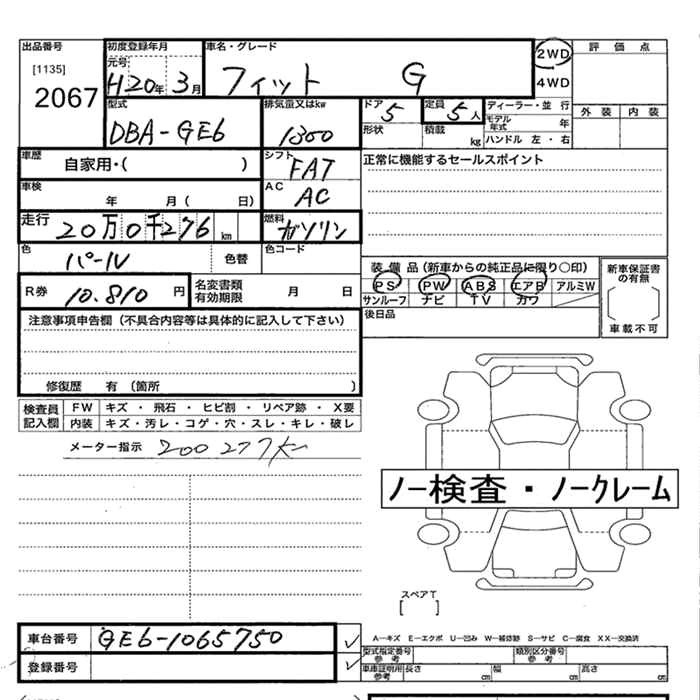 出品番号 初度登録年月 車名・グレード 2WD 評価点
[1135] 元号
2067 H20年 3月 フィット G 4WD
型式 排気量又はkw ドア 定員 ディーラー・並行 外装 内装
DBA-GE6 1300 5 5人 モデル年式 年
形状 積載 kg ハンドル 左・右
車歴 自家用・( ) シフト FAT 正常に機能するセールスポイント
車検 年 月( 日) AC AC
走行 20万0千276 km 燃料 ガソリン
色 パール 色替 色コード
装備品(新車からの純正品に限り○印) 新車保証書の有無
R券 10.810円 名変書類有効期限 月 日 PS PW ABS エアB アルミW
サンルーフ ナビ TV カワ
注意事項申告欄(不具合内容等は具体的に記入して下さい) 後日品 車載不可
修復歴 有(箇所 )
検査員記入欄 FW キズ・飛石・ヒビ割・リペア跡・X要
内装 キズ・汚レ・コゲ・穴・スレ・キレ・破レ
メーター指示 200277K
ノー検査・ノークレーム
スペアT
[ ]
車台番号 GE6-1065750
A-キズ E-エクボ U-凹ミ W-補修跡 S-サビ C-腐食 XX-交換済
登録番号 型式指定番号参考 類別区分番号参考
車庫証明用参考 長さ cm 幅 cm 高さ cm